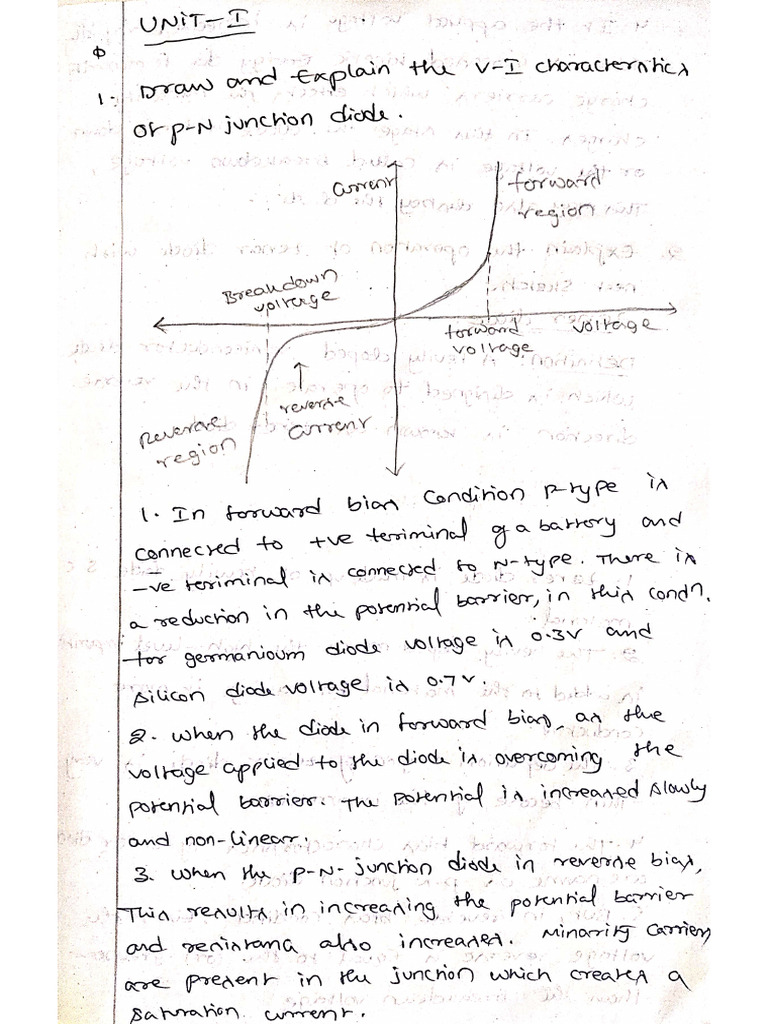 UNIT-I
1. Draw and Explain the V-I characteristics
of P-N junction diode.
current
forward
region
Breakdown
voltage
forward
voltage
voltage
reverse
current
Reverse
region
1. In forward bias Condition P-type is
connected to +ve teriminal of a battery and
-ve teriminal is connected to N-type. There is
a reduction in the potential barrier, in this condn.
for germanioum diode voltage is 0.3V and
silicon diode voltage is 0.7V.
2. when the diode in forward bias, as the
voltage applied to the diode is overcoming the
potential barrier. The Potential is increased slowly
and non-linear.
3. when the P-N-junction diode in reverse bias,
This results in increasing the potential barrier
and resistana also increases. Minarity Carriers
are present in the junction which creates a
saturation current.